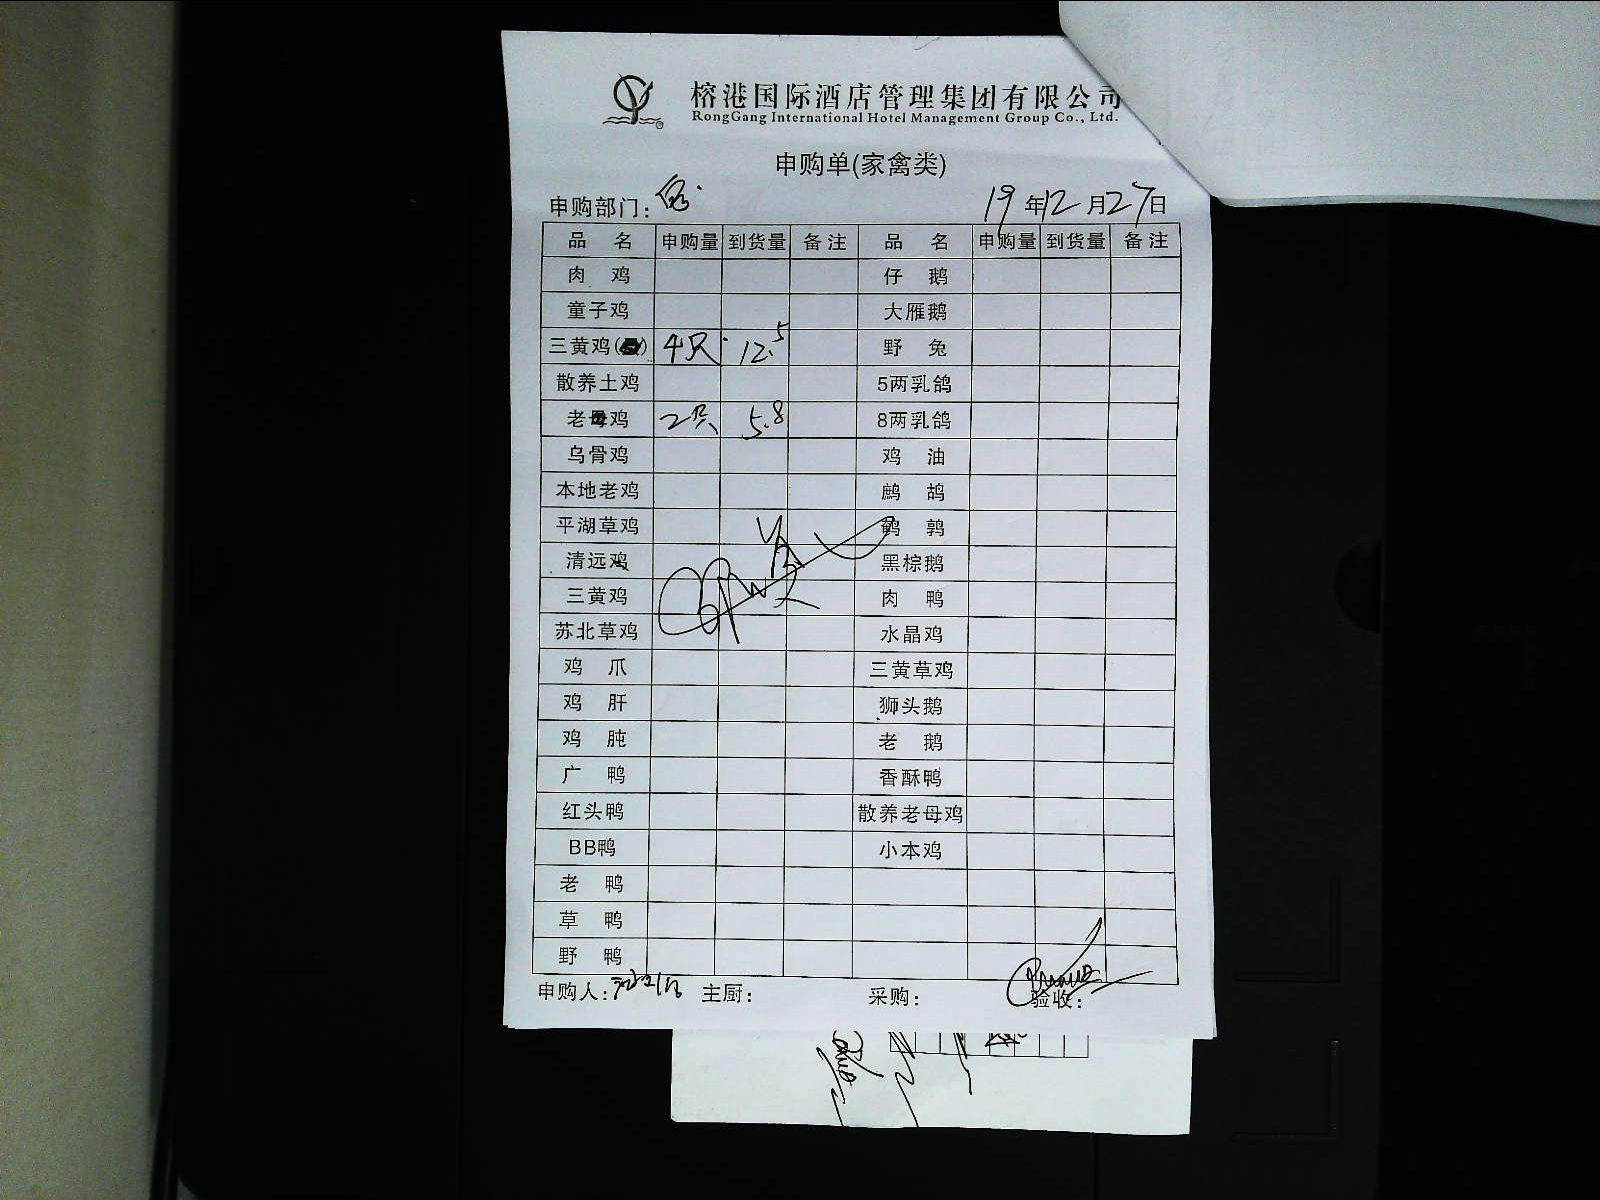 榕港国际酒店管理集团有限公司
RongGang International Hotel Management Group Co., Ltd.
申购单(家禽类)
申购部门: 19年12月27日
品 名 申购量 到货量 备注 品 名 申购量 到货量 备注
肉 鸡 仔 鹅
童子鸡 大雁鹅
三黄鸡( ) 4只 12.5 野 兔
散养土鸡 5两乳鸽
老母鸡 2只 5.8 8两乳鸽
乌骨鸡 鸡 油
本地老鸡 鹧 鸪
平湖草鸡 鹌 鹑
清远鸡 黑棕鹅
三黄鸡 肉 鸭
苏北草鸡 水晶鸡
鸡 爪 三黄草鸡
鸡 肝 狮头鹅
鸡 肫 老 鹅
广 鸭 香酥鸭
红头鸭 散养老母鸡
BB鸭 小本鸡
老 鸭
草 鸭
野 鸭
申购人: 主厨: 采购: 验收: